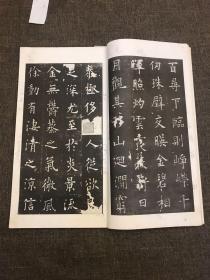 百尋下臨則崢嶸千
仞珠璧交暎金碧相
暉照灼雲霞蔽虧日
月觀其移山迴澗窮
泰極侈人從欲良
足深尤至於炎景流
金無鬱蒸之氣微風
徐動有淒清之涼信